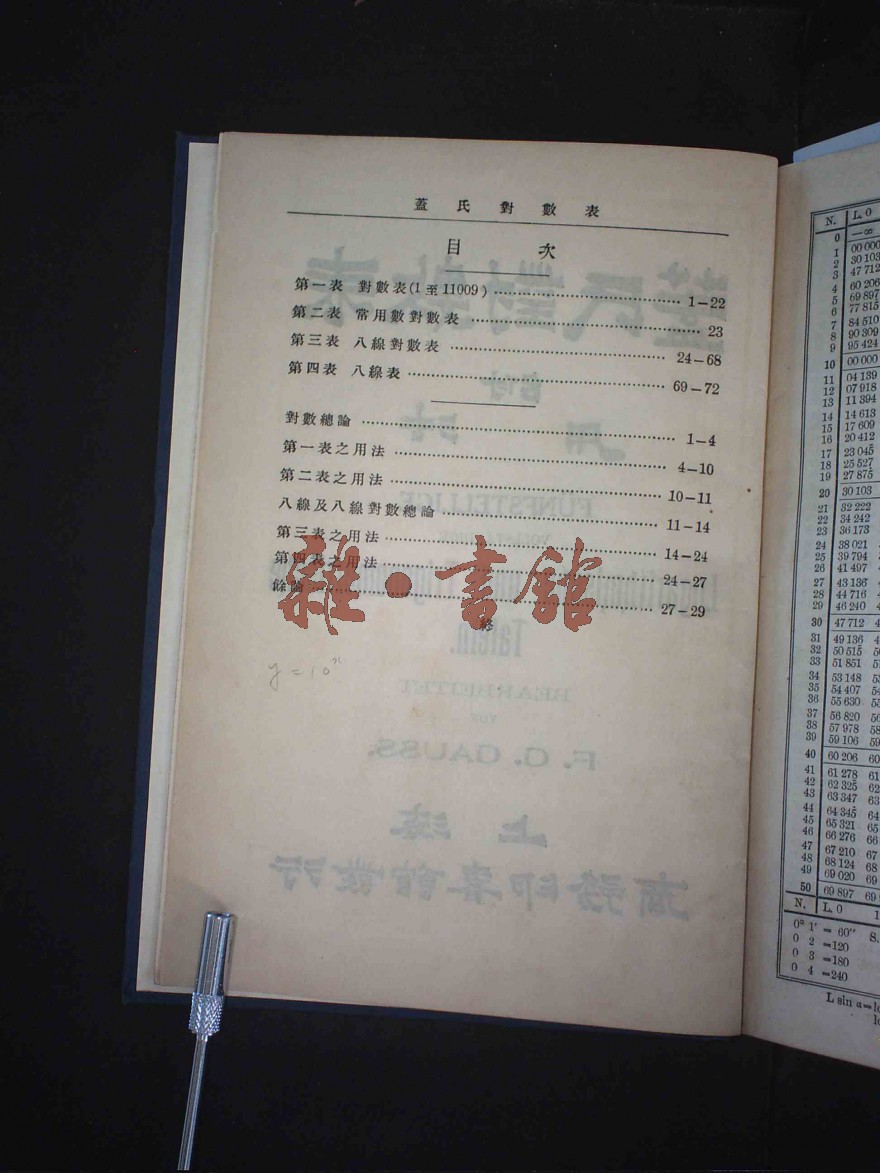 蓋氏對數表
目次
第一表 對數表(1至11009) 1—22
第二表 常用數對數表 23
第三表 八線對數表 24—68
第四表 八線表 69—72
對數總論 1—4
第一表之用法 4—10
第二表之用法 10—11
八線及八線對數總論 11—14
第三表之用法 14—24
第四表之用法 24—27
餘論 27—29
終
雜·書館
y = 10ˣ
FÜNFSTELLIGE
BEARBEITET
VON
F. G. GAUSS.
上海
商務印書館發行
N. L. 0
0 —∞
1 00 000
2 30 103
3 47 712
4 60 206
5 69 897
6 77 815
7 84 510
8 90 309
9 95 424
10 00 000
11 04 139
12 07 918
13 11 394
14 14 613
15 17 609
16 20 412
17 23 045
18 25 527
19 27 875
20 30 103
21 32 222
22 34 242
23 36 173
24 38 021
25 39 794
26 41 497
27 43 136
28 44 716
29 46 240
30 47 712
31 49 136
32 50 515
33 51 851
34 53 148
35 54 407
36 55 630
37 56 820
38 57 978
39 59 106
40 60 206
41 61 278
42 62 325
43 63 347
44 64 345
45 65 321
46 66 276
47 67 210
48 68 124
49 69 020
50 69 897
N. L. 0
0° 1' = 60" S.
0 2 =120
0 3 =180
0 4 =240
L sin α=